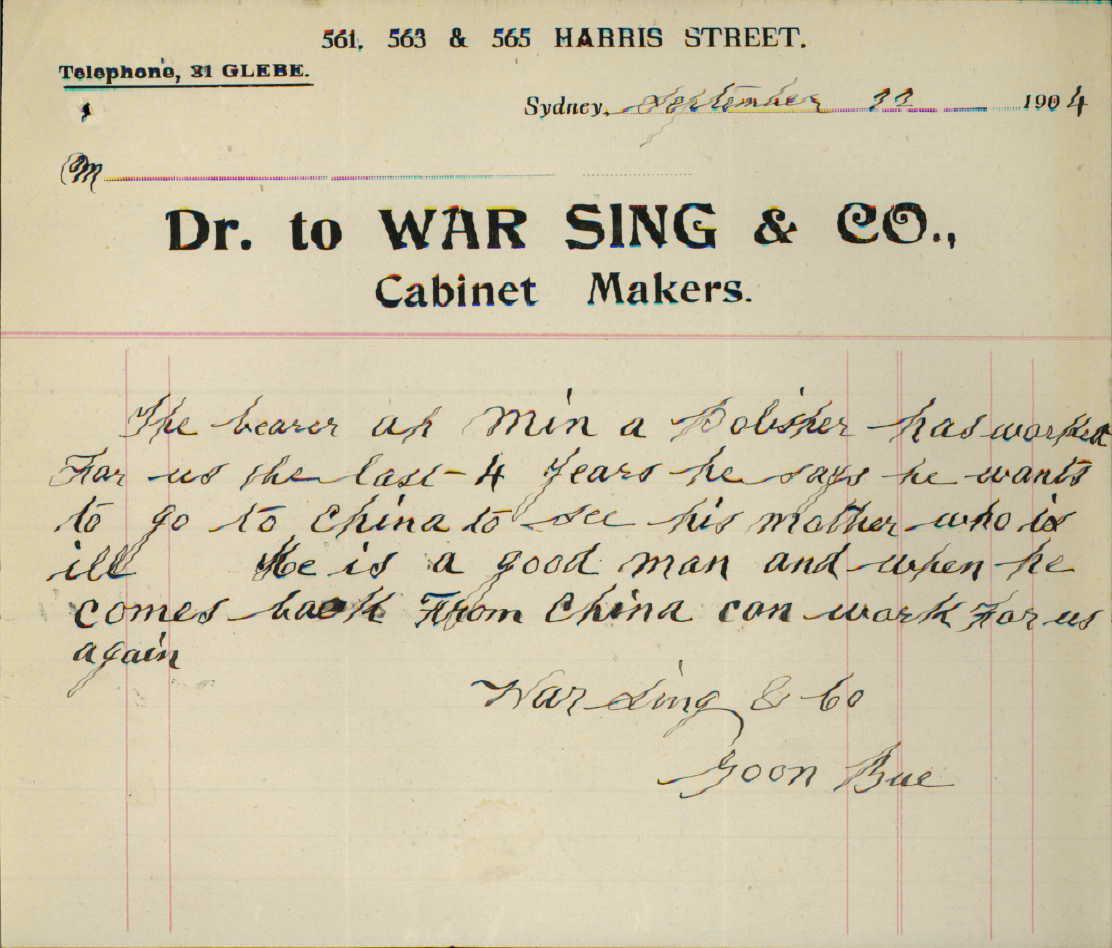 561, 563 & 565 HARRIS STREET.
Telephone, 31 GLEBE.
Sydney, September 22 1904
M
Dr. to WAR SING & CO.,
Cabinet Makers.
The bearer ah Min a Polisher has worked
For us the last 4 years he says he wants
to go to China to see his mother who is
ill He is a good man and when he
comes back From China can work For us
again
War Sing & Co
Goon Bue